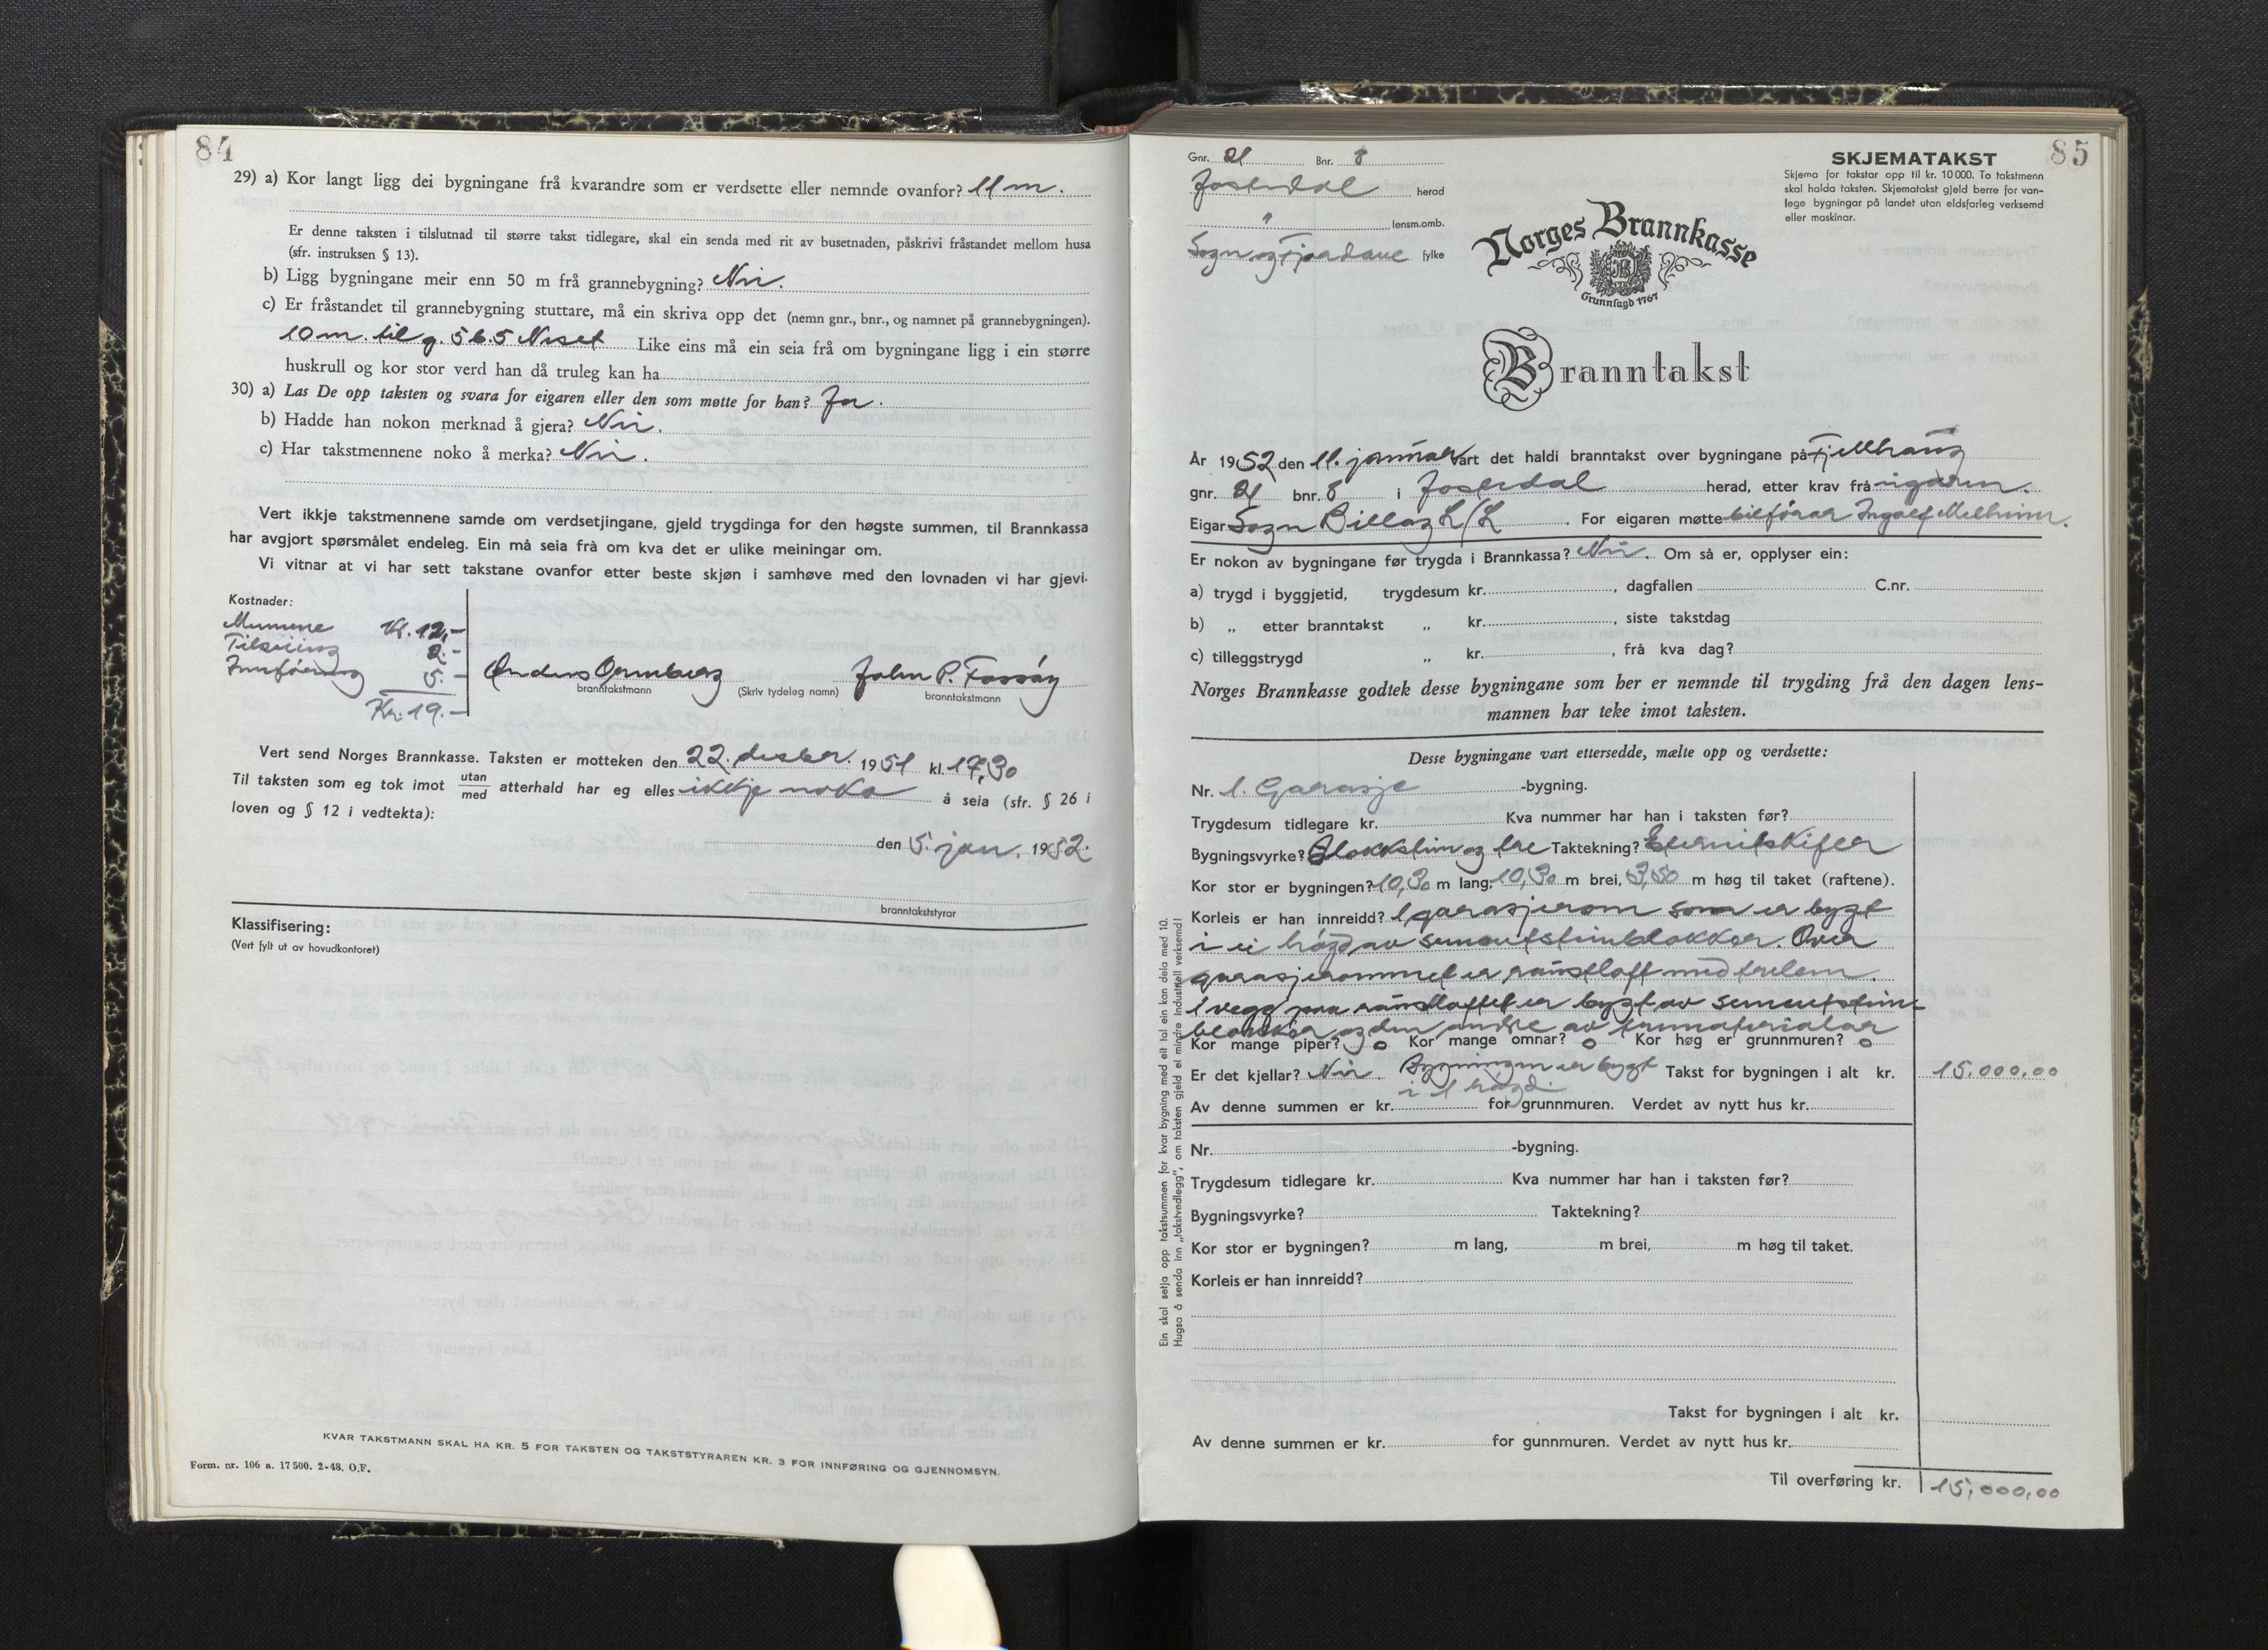 84
29) a) Kor langt ligg dei bygningane frå kvarandre som er verdsette eller nemnde ovanfor? 11 m.
Er denne taksten i tilslutnad til større takst tidlegare, skal ein senda med rit av busetnaden, påskrivi fråstandet mellom husa
(sfr. instruksen § 13).
b) Ligg bygningane meir enn 50 m frå grannebygning? Nei.
c) Er fråstandet til grannebygning stuttare, må ein skriva opp det (nemn gnr., bnr., og namnet på grannebygningen).
10 m. til g. 5 b. 5 Neset Like eins må ein seia frå om bygningane ligg i ein større
huskrull og kor stor verd han då truleg kan ha
30) a) Las De opp taksten og svara for eigaren eller den som møtte for han? Ja.
b) Hadde han nokon merknad å gjera? Nei.
c) Har takstmennene noko å merka? Nei.
Vert ikkje takstmennene samde om verdsetjingane, gjeld trygdinga for den høgste summen, til Brannkassa
har avgjort spørsmålet endeleg. Ein må seia frå om kva det er ulike meiningar om.
Vi vitnar at vi har sett takstane ovanfor etter beste skjøn i samhøve med den lovnaden vi har gjevi.
Kostnader:
Mennene Kr. 12,-
Tilseiing 2.-
Innføring 5.-
Kr. 19.-
Anders Ormberg John P. Fossøy
branntakstmann (Skriv tydeleg namn) branntakstmann
Vert send Norges Brannkasse. Taksten er motteken den 22. desbr. 1951 kl. 17,30
Til taksten som eg tok imot utan/med atterhald har eg elles ikkje noko å seia (sfr. § 26 i
loven og § 12 i vedtekta):
den 5. jan. 1952.
branntakststyrar
Klassifisering:
(Vert fylt ut av hovudkontoret)
KVAR TAKSTMANN SKAL HA KR. 5 FOR TAKSTEN OG TAKSTSTYRAREN KR. 3 FOR INNFØRING OG GJENNOMSYN.
Form. nr. 106 a. 17500. 2-48. O.F.
85
Gnr. 21 Bnr. 8
Jostedal herad
" lensm.omb.
Sogn og Fjordane fylke
SKJEMATAKST
Skjema for takstar opp til kr. 10 000. To takstmenn
skal halda taksten. Skjematakst gjeld berre for van-
lege bygningar på landet utan eldsfarleg verksemd
eller maskinar.
Norges Brannkasse
Grunnlagd 1767
Branntakst
År 1952 den 11. januar vart det haldi branntakst over bygningane på Fjellhaug
gnr. 21 bnr. 8 i Jostedal herad, etter krav frå eigaren.
Eigar Sogn Billag L/L. For eigaren møtte bilførar Ingolf Melheim.
Er nokon av bygningane før trygda i Brannkassa? Nei. Om så er, opplyser ein:
a) trygd i byggjetid, trygdesum kr. , dagfallen C.nr.
b) „ etter branntakst „ kr. , siste takstdag
c) tilleggstrygd „ kr. , frå kva dag?
Norges Brannkasse godtek desse bygningane som her er nemnde til trygding frå den dagen lens-
mannen har teke imot taksten.
Desse bygningane vart ettersedde, mælte opp og verdsette:
Nr. 1. Garasje -bygning.
Trygdesum tidlegare kr. Kva nummer har han i taksten før?
Bygningsvyrke? Blokkstein og tre Taktekning? Eternitskifer
Kor stor er bygningen? 10,30 m lang, 10,30 m brei, 3,50 m høg til taket (raftene).
Korleis er han innreidd? 1 garasjerom som er bygt
i ei høgd av sementsteinblokker. Over
garasjerommet er raustloft med trelem.
1 vegg paa raustloftet er bygt av sementstein-
blokker og den andre av trematerialar
Kor mange piper? o Kor mange omnar? o Kor høg er grunnmuren? o
Er det kjellar? Nei. Bygningen er bygt Takst for bygningen i alt kr. 15.000,00
i 1 høgd.
Av denne summen er kr. for grunnmuren. Verdet av nytt hus kr.
Nr. -bygning.
Trygdesum tidlegare kr. Kva nummer har han i taksten før?
Bygningsvyrke? Taktekning?
Kor stor er bygningen? m lang, m brei, m høg til taket.
Korleis er han innreidd?
Takst for bygningen i alt kr.
Av denne summen er kr. for gunnmuren. Verdet av nytt hus kr.
Til overføring kr. 15.000,00
Ein skal setja opp takstsummen for kvar bygning med eit tal ein kan dela med 10.
Hugsa å senda inn „takstvedlegg”, om taksten gjeld ei mindre industriell verksemd!